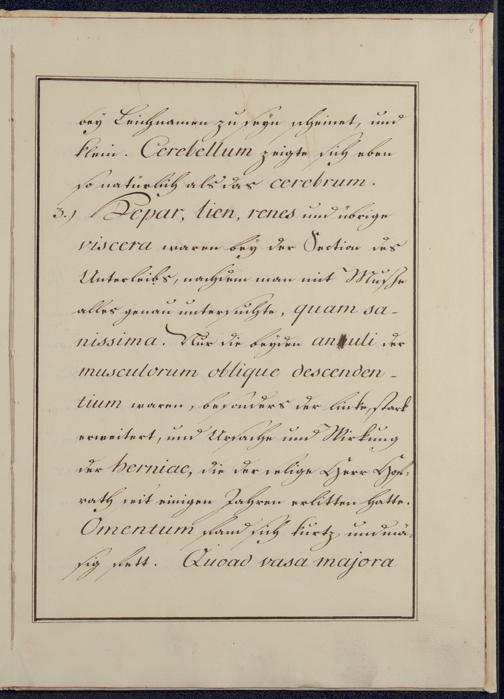 6
bey Leichnamen zu seyn scheinet, und
klein. Cerebellum zeigte sich eben
so natürlich als das cerebrum.
3.) Hepar, lien, renes und übrige
viscera waren bey der Section des
Unterleibs, nachdem man mit Musse
alles genau untersuchte, quam sa-
nissima. Nur die beyden annuli der
musculorum oblique descenden-
tium waren, besonders der linke, stark
erweitert, und Ursache und Wirkung
der herniae, die der selige Herr Hof-
rath seit einigen Jahren erlitten hatte.
Omentum fand sich kurtz, und mä-
sig fett. Quoad vasa majora